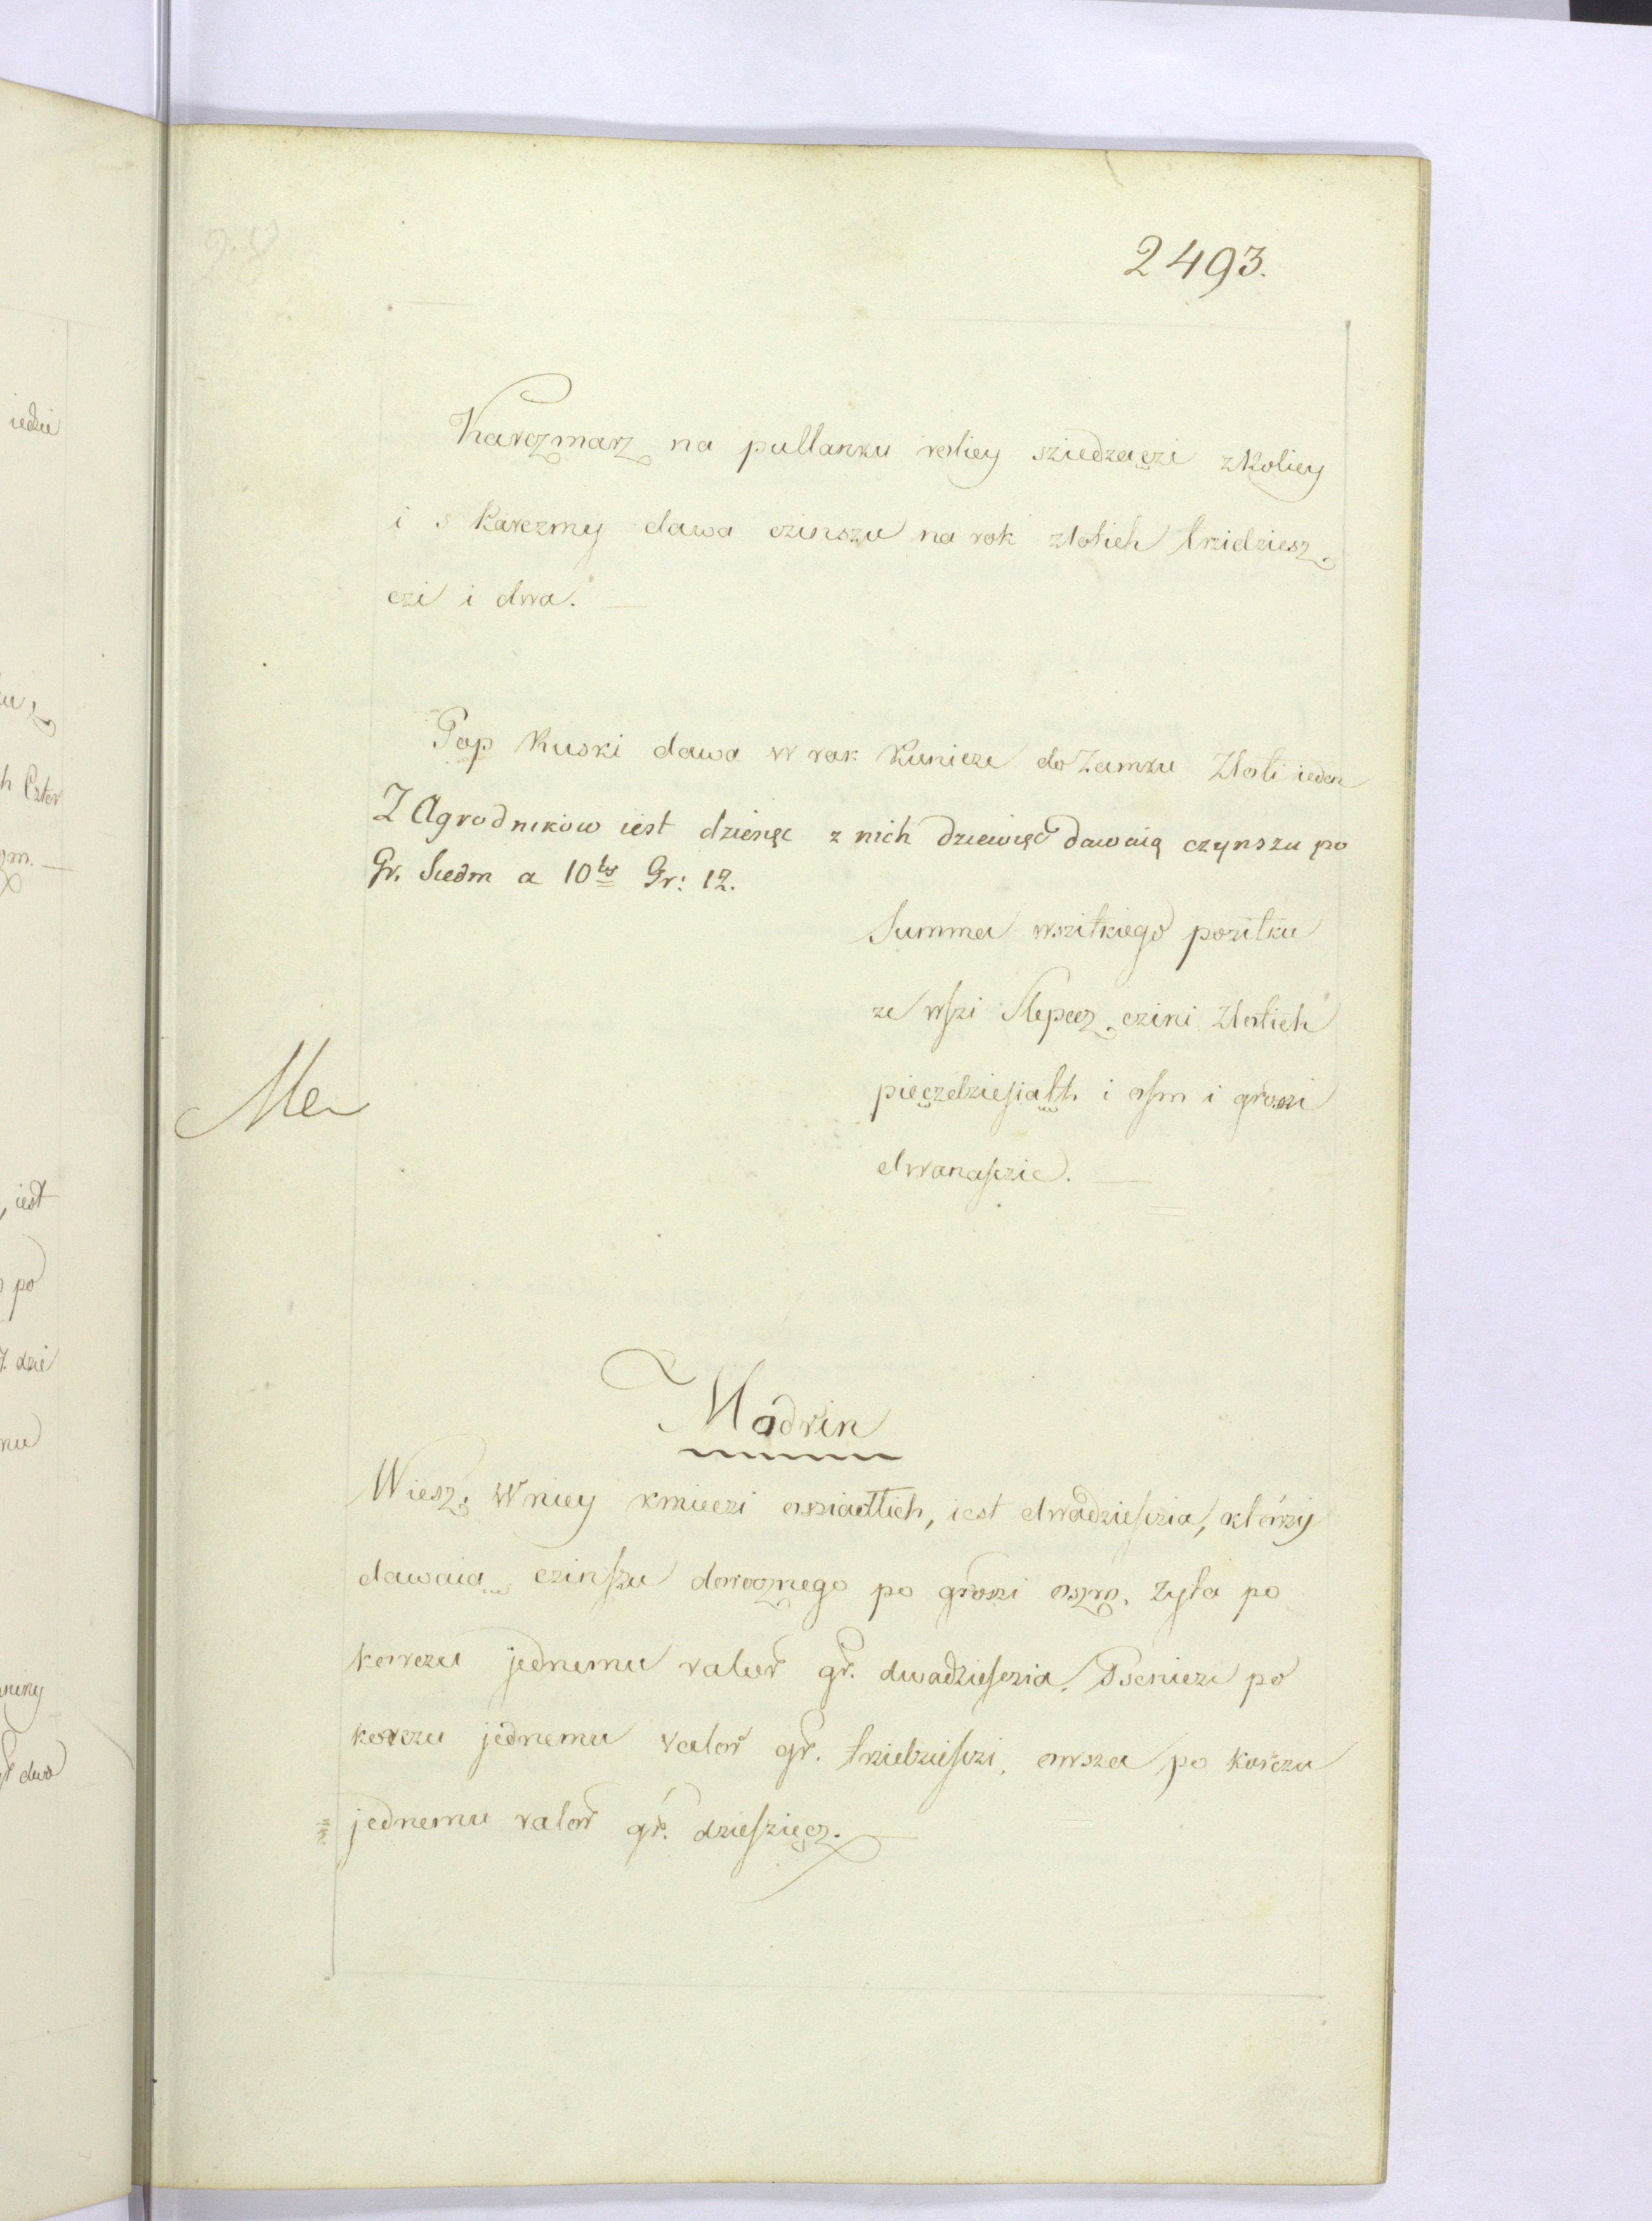 2493.
Karczmarz na pullanku roliey sziedzęczi z Roliey
i s Karczmy dawa czinszu na rok złotich trzidziesz
czi i dwa.
Pop Ruski dawa w rok Kunicze do Zamku Złoti ieden
Z Agrodnikow iest dziesięc z nich dziewięc dawaią czynszu po
Gr. Siedm a 10ty Gr: 12.
Summa wszitkiego pozitku
ze wszi Slepcz czini Złotich
pięczdziesiąth i osm i groszi
dwanaszcie.
Modrin
Wiesz, W niey kmieczi osziadłich, iest dwadziesczia, którzy
dawaią czinszu dorocznego po groszi oszm, Zyta po
korczu jednemu valor gr. dwadziesczia, Psenicze po
korczu jednemu valor gr. trzidziesczi, owsza po korczu
jednemu valor gr. dzieszięcz.